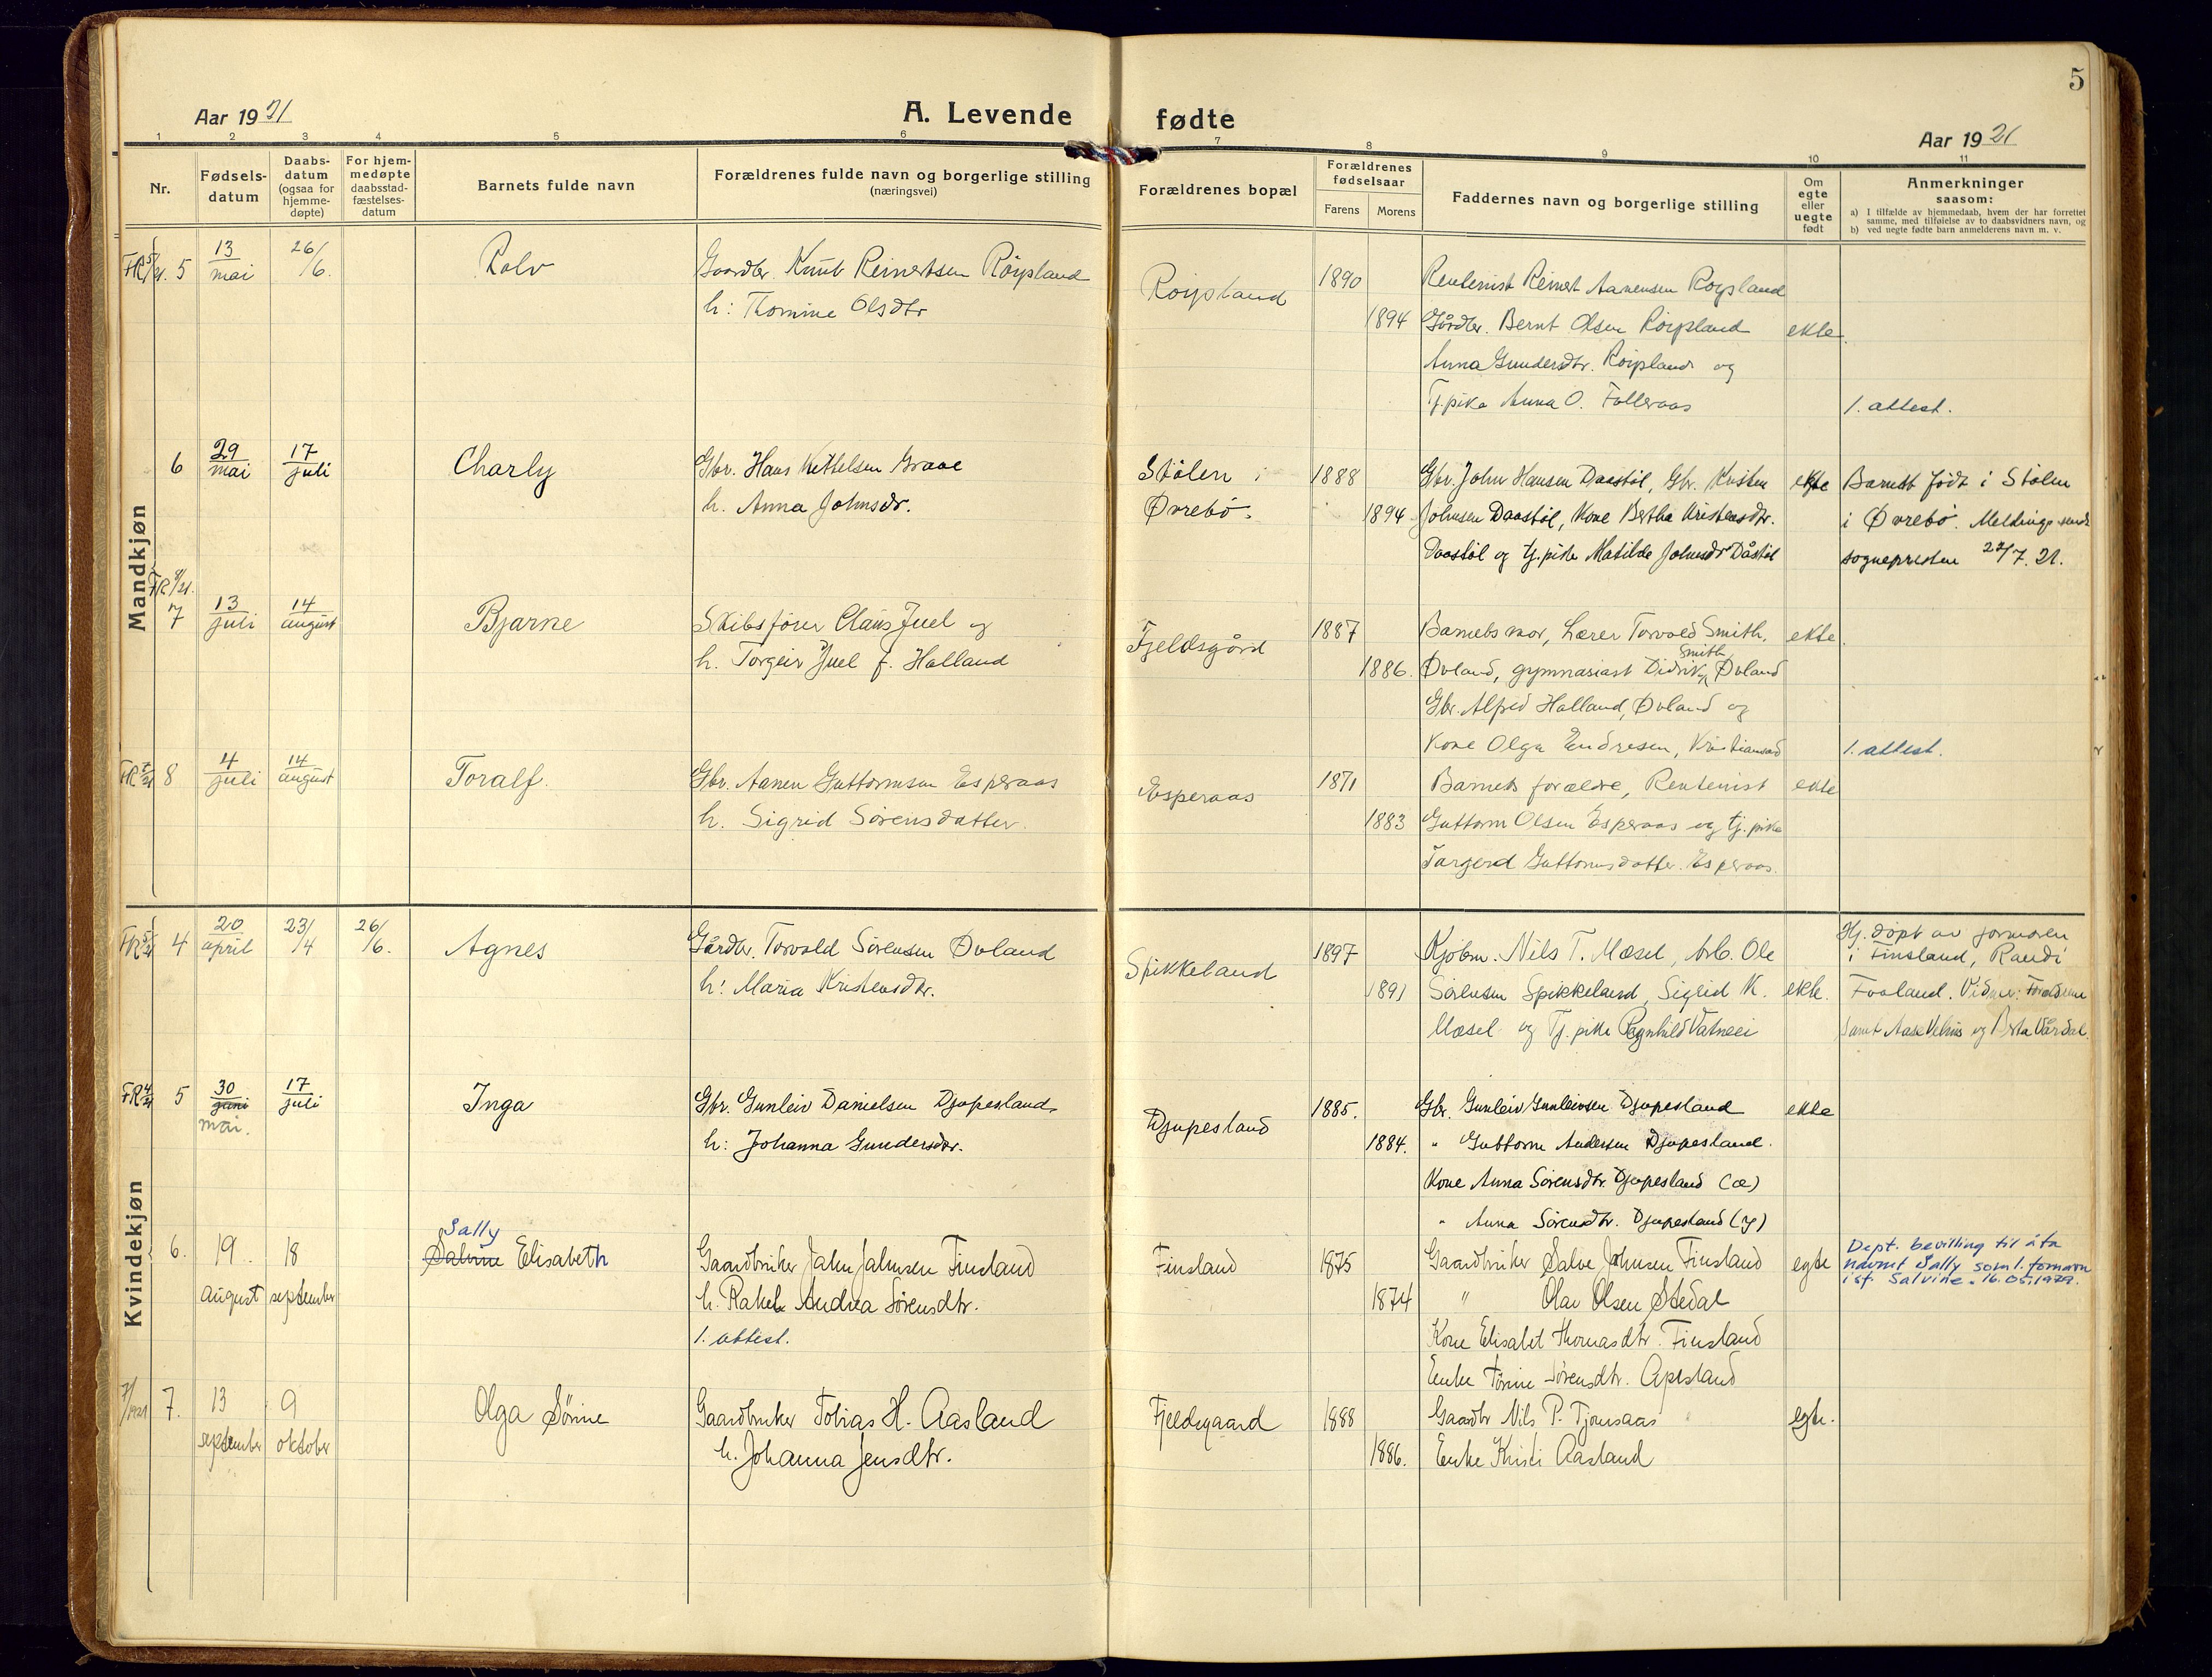 5
Aar 1921
A. Levende fødte
Aar 1921
1 2 3 4 5 6 7 8 9 10 11
Nr.
Fødsels-
datum
Daabs-
datum
(ogsaa for
hjemme-
døpte)
For hjem-
medøpte
daabsstad-
fæstelses-
datum
Barnets fulde navn
Forældrenes fulde navn og borgerlige stilling
(næringsvei)
Forældrenes bopæl
Forældrenes
fødselsaar
Farens Morens
Faddernes navn og borgerlige stilling
Om
egte
eller
uegte
født
Anmerkninger
saasom:
a) I tilfælde av hjemmedaab, hvem der har forrettet
samme, med tilføielse av to daabsvidners navn, og
b) ved uegte fødte barn anmelderens navn m. v.
Mandkjøn
5 13 mai 26/6. Rolv Gaardbr. Knut Reinertsen Röipland Roipland 1890 Rentenist Reinert Aanensen Roipland
h: Thomine Olsdtr 1894 Gårdbr. Bernt Olsen Roipland ekte.
Anna Gundersdtr. Roipland og
Tj.pike Anna O. Falleraas 1. attest.
6 29 mai 17 juli Charly Gbr. Hans Kittelsen Graae Stölen i 1888 Gbr. John Hansen Daastöl, Gbr. Kristen ekte Barnet födt i Stölen
h. Anna Johnsdr. Øvrebö. 1894 Johnsen Daastöl, Kone Bertha Kristensdtr. i Øvrebö. Melding sendt
Daastöl og tj.pike Matilde Johnsdr Dåstöl sognepresten 22/7. 21.
7 13 juli 14 august Bjarne Skibsförer Claus Juel og Fjeldsgård 1887 Barnets mor, Lærer Torvald Smith, ekte.
h. Torgeir Juel f. Halland 1886. Øvland, gymnasiast Didrik Smith, Øvland
Gbr. Alfred Halland, Øvland og
Kone Olga Endresen, Kristiansand 1. attest.
8 4 juli 14 august Toralf. Gbr. Aanen Guttormsen Esperaas Esperaas 1871 Barnets forældre, Rentenist ekte
h. Sigrid Sörensdatter. 1883 Guttorm Olsen Esperaas og tj. pike
Targerd Guttormsdatter Esperaas.
Kvindekjøn
4 20 april 23/4 26/6. Agnes Gårdbr. Torvald Sörensen Øvland Spikkeland 1897 Kjöbm. Nils T. Mæsel, Arb. Ole Hj. döpt av jormoren
h: Maria Kristensdtr. 1891 Sörensen Spikkeland, Sigrid K. ekte. i Finsland, Randi
Mæsel og Tj. pike Ragnhild Vatneei Fooland. Vidner: Foreldrene
samt Aase og
5 30 juni 17 juli Inga Gbr. Gunleiv Danielsen Djupesland Djupesland 1885. Gbr. Gunleiv Gunleivsen Djupesland ekte
mai. h: Johanna Gundersdtr. 1884. " Guttorm Andersen Djupesland.
Kone Anna Sörensdtr. Djupesland (æ)
" Anna Sörensdtr. Djupesland (y)
6. 19. august 18 september Sally Salvine Elisabeth Gaardbruker Jahn Jahnsen Finsland Finsland 1875 Gaardbruker Salve Johnsen Finsland egte Dept. bevilling til å ta
h. Rakel Andrea Sörensdtr. 1874 " Olav Olsen Stedal navnet Sally som 1. fornavn
1. attest. Kone Elisabet Thomasdtr. Finsland i st. Salvine. 16.05.1929.
Enke Torine Sørensdtr. Apesland
7. 13 september 9 oktober Olga Sörine Gaardbruker Tobias H. Aasland Fjeldsgaard 1888 Gaardbr Nils P. Tjomsaas egte.
h. Johanna Jensdtr. 1886. Enke Kristi Aasland